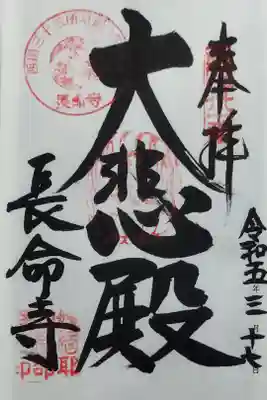 奉拝
令和五年三月十七日
大悲殿
長命寺